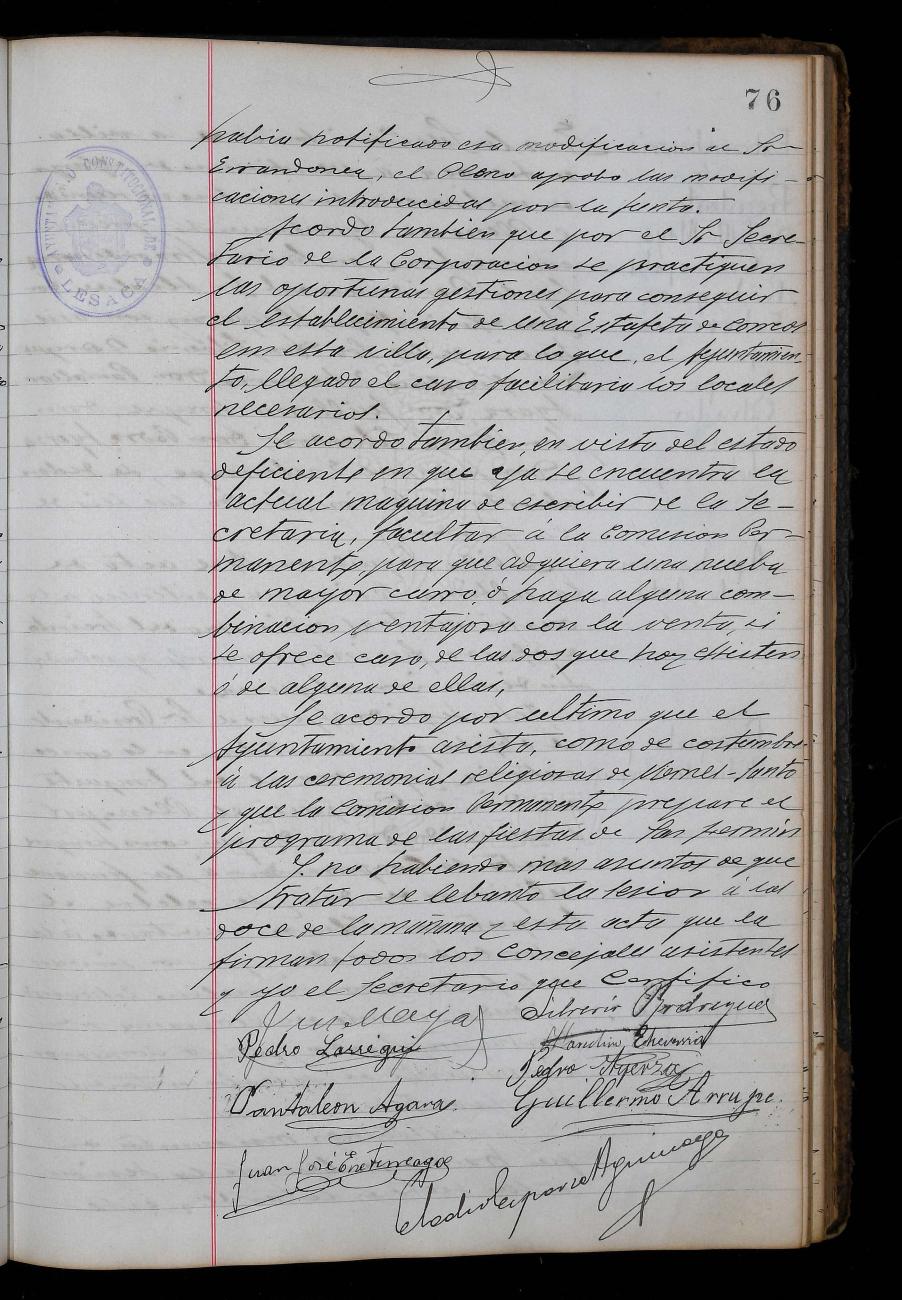 76
AYUNTAMIENTO CONSTITUCIONAL DE
LESACA
habia notificado esa modificacion al Sr
Errandonea, el Pleno aprobo las modifi-
caciones introducidas por la Junta.
Acordo tambien que por el Sr Secre-
tario de la Corporacion se practiquen
las oportunas gestiones para conseguir
el establecimiento de una Estafeta de Correos
em esta villa, para lo que, el Ayuntamien-
to, llegado el caso facilitaria los locales
necesarios.
Se acordo tambien, en vista del estado
deficiente en que ya se encuentra la
actual maquina de escribir de la Se-
cretaria, facultar á la Comision Per-
manente, para que adquiera una nueba
de mayor carro ó haga alguna com-
binacion ventajosa con la venta, si
se ofrece caso, de las dos que hoy existen
ó de alguna de ellas,
Se acordo por ultimo que el
Ayuntamiento asista, como de costumbre
á las ceremonias religiosas de Viernes-Santo
y que la Comision Permanente prepare el
programa de las fiestas de San Fermin
Y no habiendo mas asuntos de que
tratar se lebanto la sesion á las
doce de la mañana y esta acta que la
firman todos los concejales asistentes
y yo el Secretario que Certifico
Luis Maya Silverio Rodriguez
Pedro Larregui Echeverria
Pedro Ayerza
Pantaleon Agara Guillermo Arrupe.
Juan José
Eladio Esparza Aguinaga